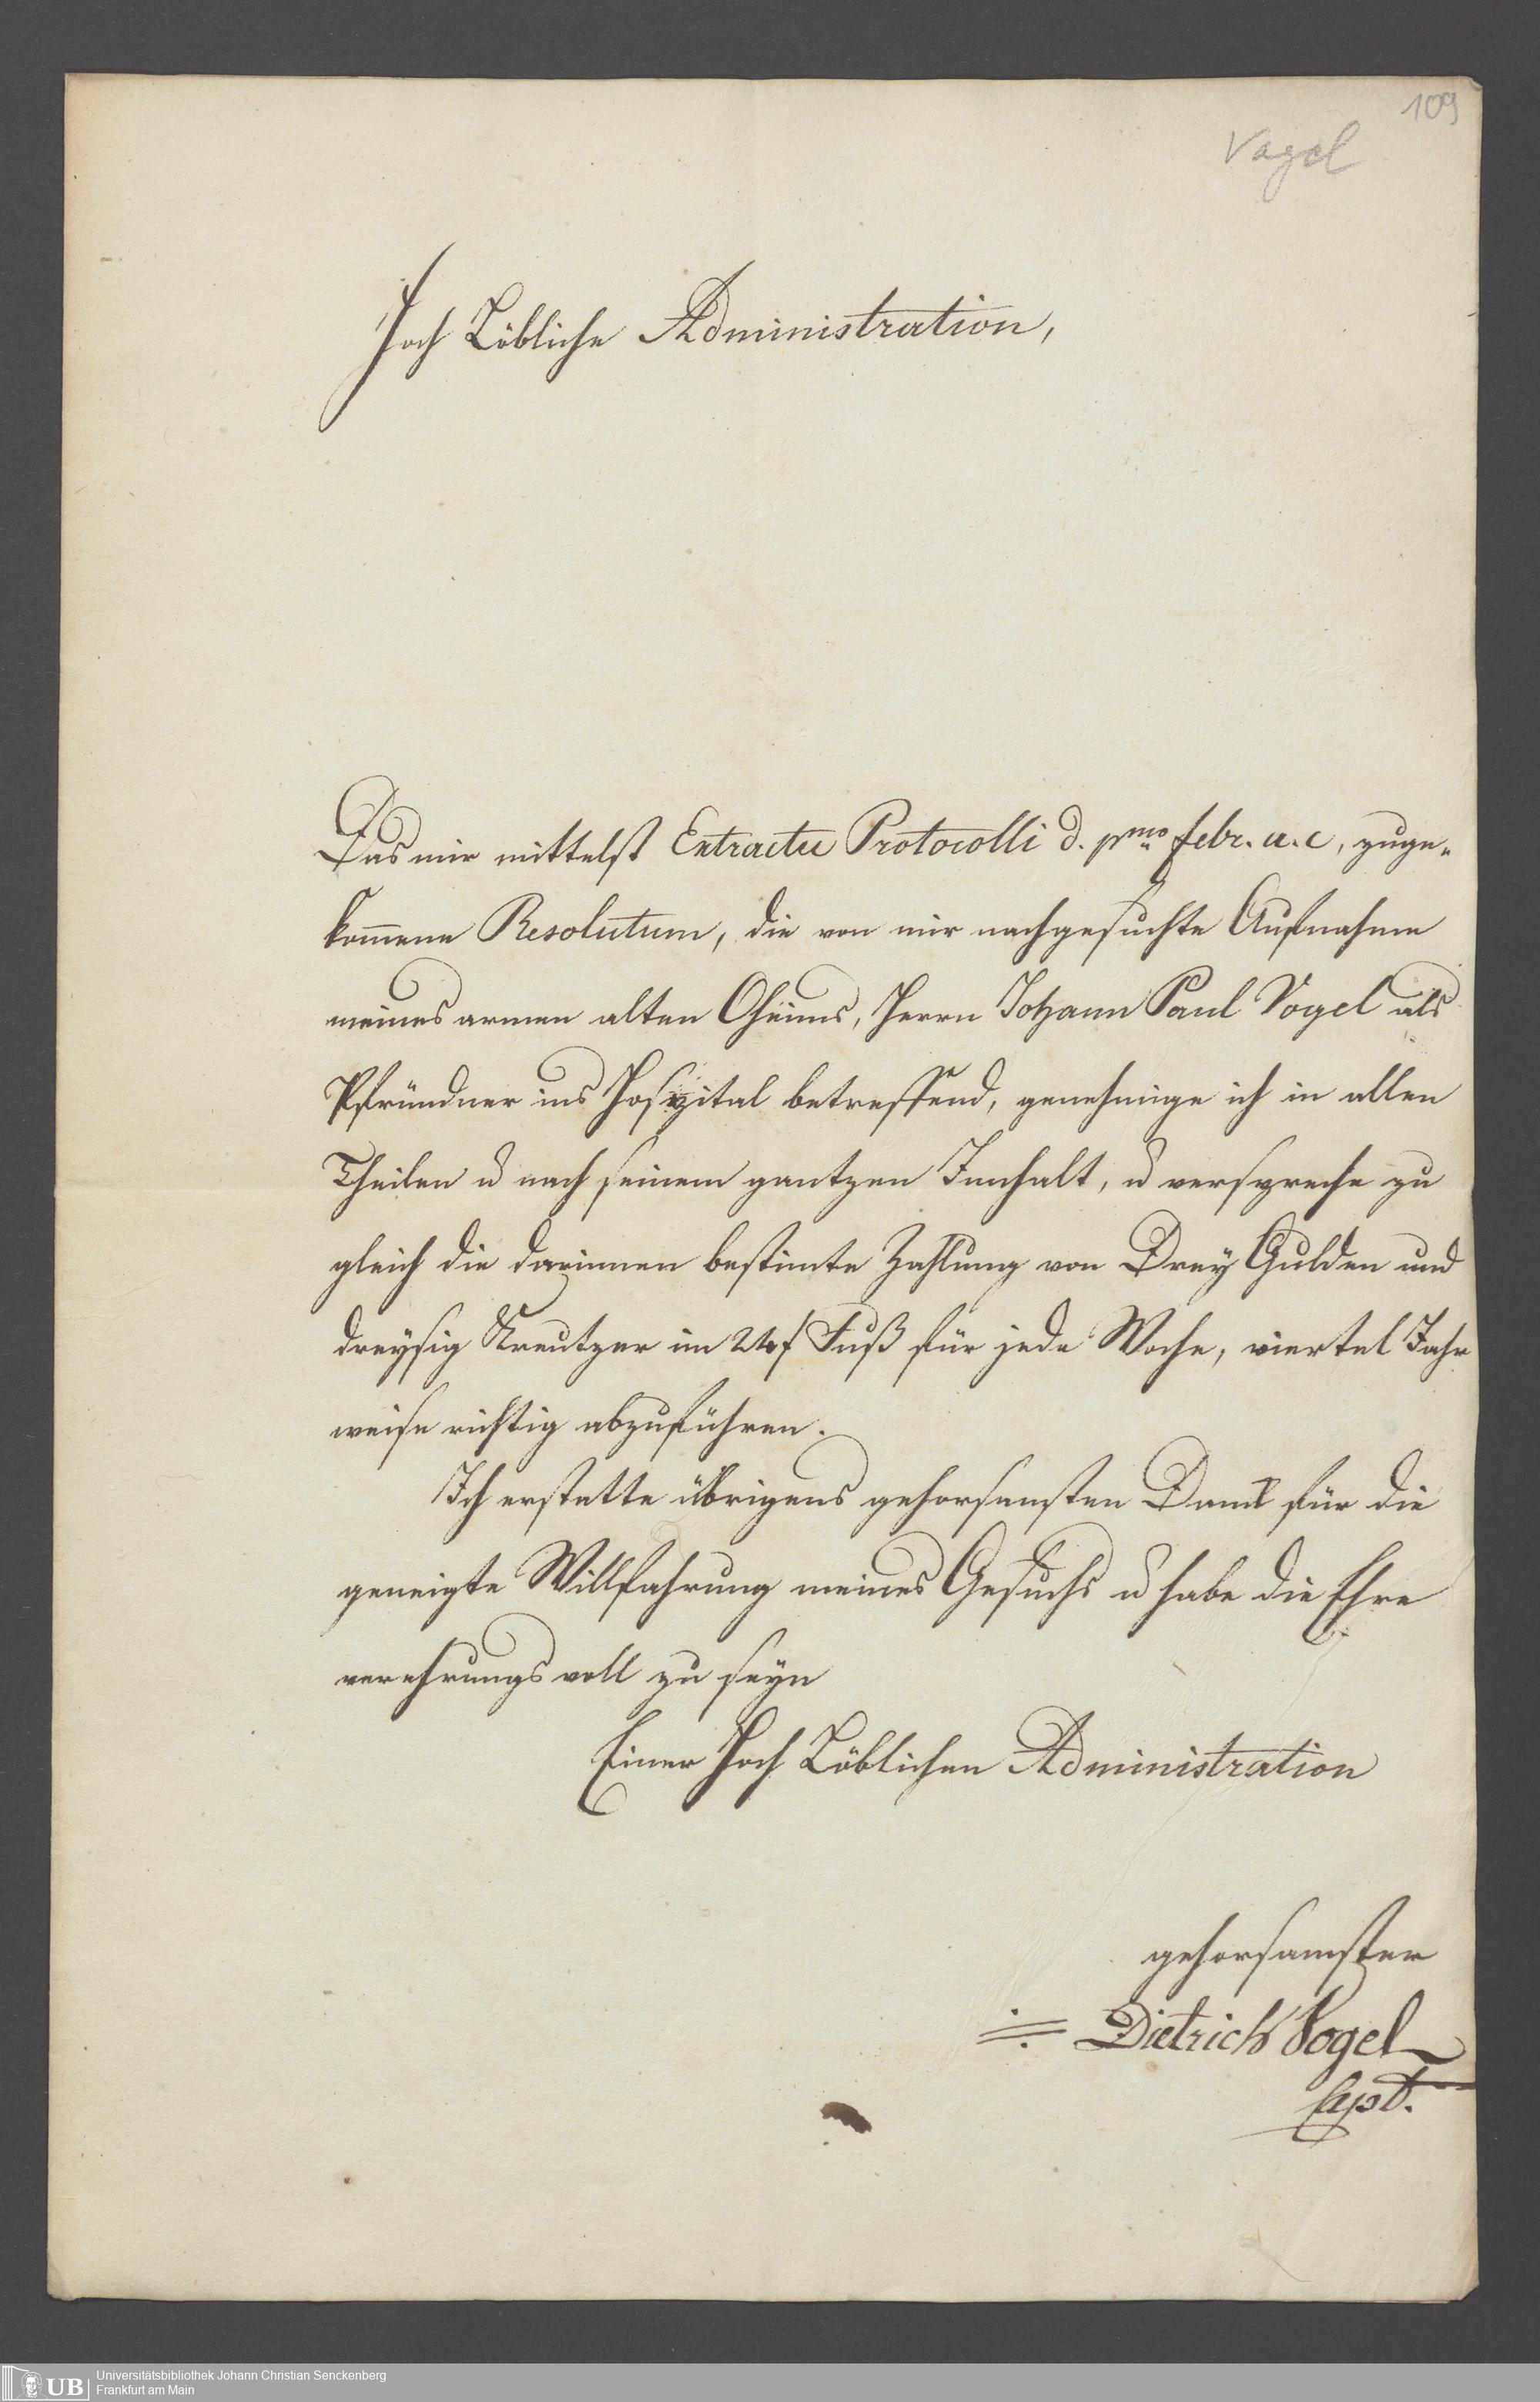 109
Vogel
Hoch Löbliche Administration,
Das mir mittelst Extractu Protocolli d. pmo febr. a. c, zuge„
kom̄ene Resolutum, die von mir nachgesuchte Aufnahme
meines armen alten Oheims, Herrn Johann Paul Vogel als
Pfründner ins Hospital betreffend, genehmige ich in allen
Theilen u nach seinem gantzen Innhalt, u verspreche zu
gleich die darinnen bestimte Zahlung von Drey Gulden und
dreysig Kreutzer im 24f Fuß für jede Woche, viertel Jahr
weise richtig abzuführen.
Ich erstatte übrigens gehorsamsten Dank für die
geneigte Willfahrung meines Gesuchs u habe die Ehre
verehrungsvoll zu seyn
Einer Hoch Löblichen Administration
gehorsamster
Dietrich Vogel
Capt.
UB
Universitätsbibliothek Johann Christian Senckenberg
Frankfurt am Main